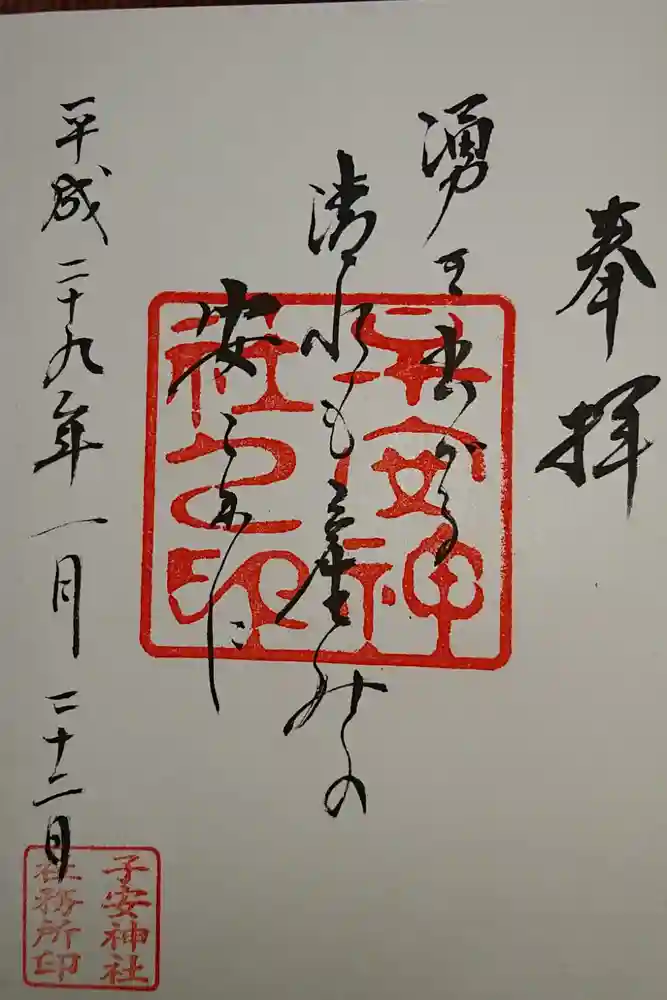 奉拝
湧出る
清水も産の
安に
平成二十九年一月二十二日
子安神
社之印
子安神社
社務所印